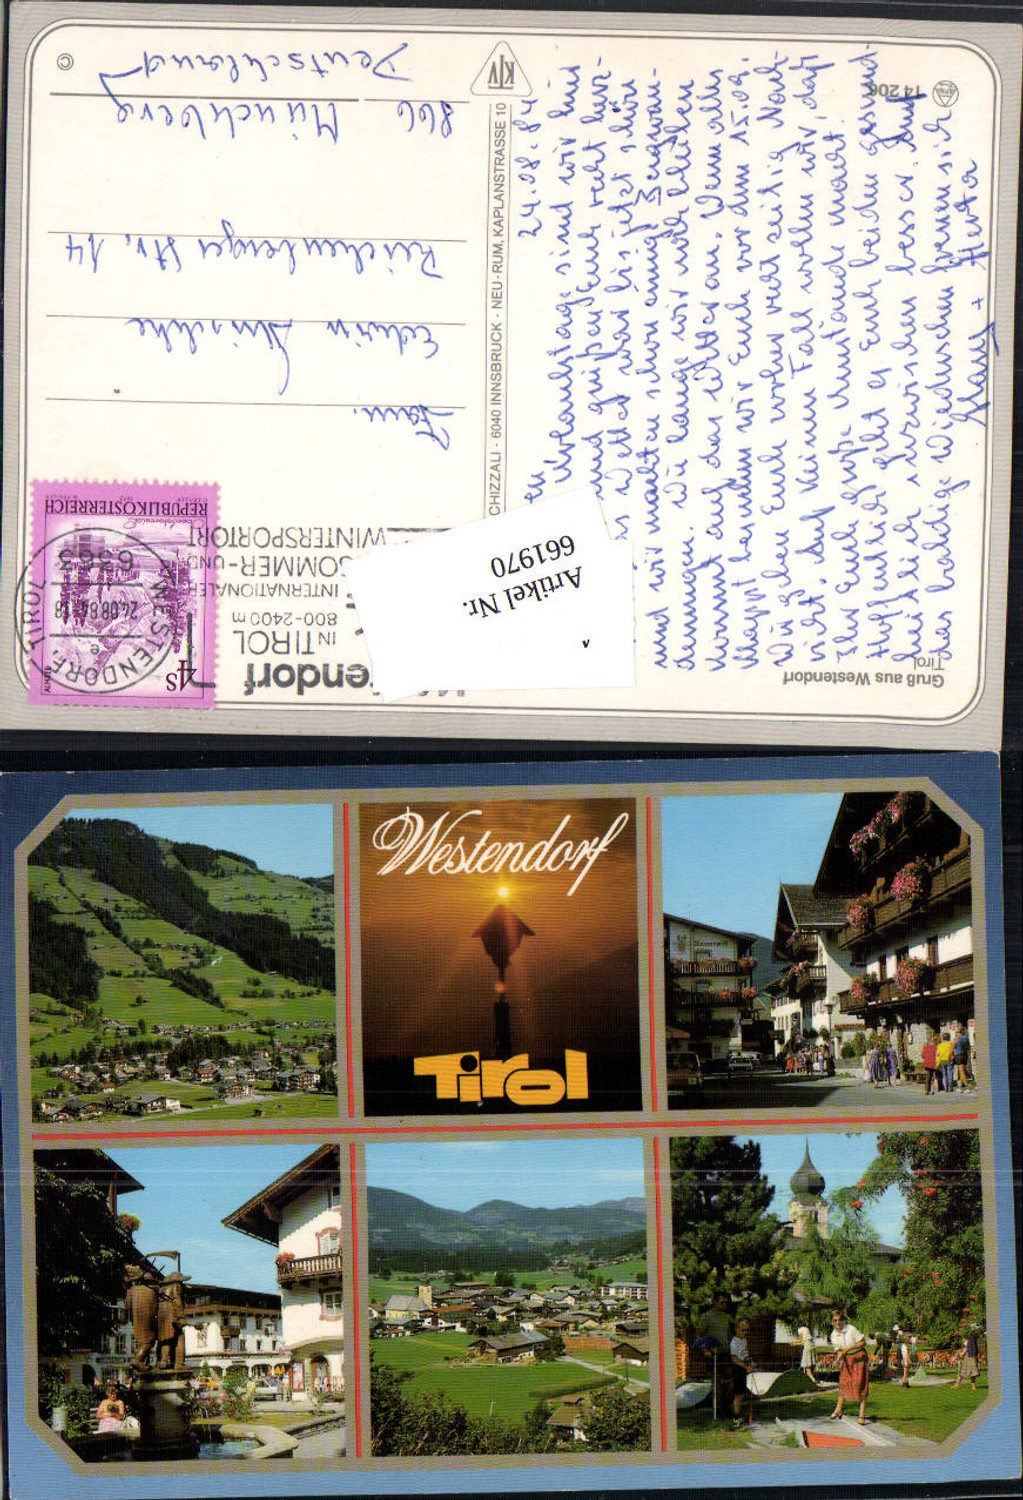 Gruß aus Westendorf
Tirol
14 206
24.08.84
Urlaubstage sind wir hier
und grüßen Euch recht herz-
Wetter war bis jetzt schön
und wir machten schon einige Bergwan-
derungen. Wie lange wir noch bleiben
kommt auf das Wetter an. Wenn alles
klappt kommen wir Euch vor dem 15.09.
Wir geben Euch vorher recht zeitig Nach-
richt. Auf keinen Fall wollen wir, daß
Ihr Euch große Umstände macht.
Hoffentlich geht es Euch beiden gesund-
heitlich inzwischen besser. Auf
das baldige Wiedersehen freuen sich
Klaus + Herta
CHIZZALI - 6040 INNSBRUCK - NEU-RUM, KAPLANSTRASSE 10
KTV
Artikel Nr.
661970
endorf
IN TIROL
800-2400 m
INTERNATIONALER
SOMMER- UND
WINTERSPORTORT
WESTENDORF, TIROL
24.08.84-18
e
6363
4S
ALMSEE
REPUBLIK ÖSTERREICH
Fam.
Edwin
Reichenberger Str. 14
866 Münchberg
Deutschland
©
Westendorf
Tirol